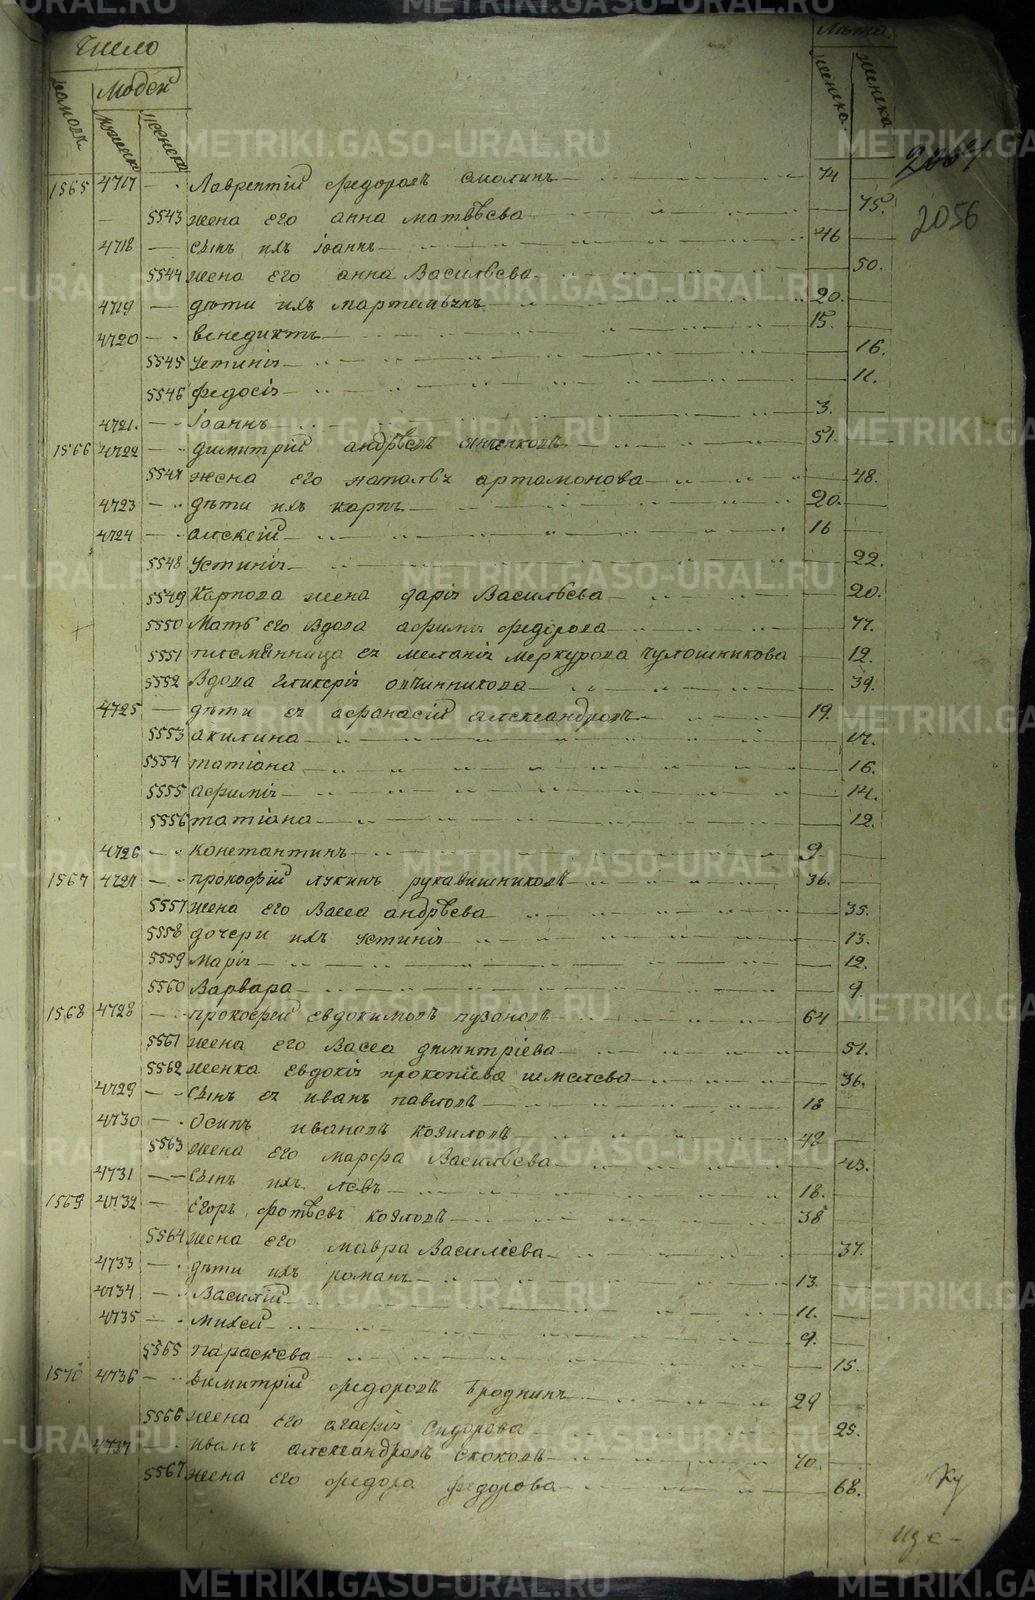 Число Лѣта
домовъ людей мужеска женска мужеска женска
2057
2056
1565 4717 Лаврентій Федоровъ Смолинъ 74
5543 жена его анна матвѣева 75.
4718 сынъ ихъ Іоаннъ 46
5544 жена его анна Васильева 50.
4719 дѣти ихъ мартемьянъ 20.
4720 венедиктъ 15.
5545 устинія 16.
5546 федосія 11.
4721. Іоаннъ 3.
1566 4722 димитрій андрѣевъ 51.
5547 жена его наталья артамонова 48.
4723 дѣти ихъ карпъ 20.
4724 алексій 16
5548 устинія 22.
5549 Карпова жена дарія Васильева 20.
5550 Мать его вдова афимія федорова 77.
5551 племянница ея меланія меркурова чулошникова 12.
5552 Вдова гликерія овчинникова 39.
4725 дѣти ея афанасій александровъ 19.
5553 акилина 17.
5554 татіана 16.
5555 афимія 14.
5556 татіана 12.
4726 константинъ 9
1567 4727 прокофій лукинъ рукавишниковъ 36.
5557 жена его Васса андрѣева 35.
5558 дочери ихъ устинія 13.
5559 марія 12.
5560 Варвара 9.
1568 4728 прокофій евдокимовъ пузановъ 64
5561 жена его Васса димитріева 51.
5562 женка евдокія прокопіева шмелева 36.
4729 сынъ ея иванъ павловъ 18
4730 Осипъ ивановъ козиловъ 42
5563 жена его марфа Васильева 43.
4731 сынъ ихъ левъ 18.
1569 4732 Егоръ фотѣевъ козловъ 38
5564 жена его мавра Василіева 37.
4733 дѣти ихъ романъ 13.
4734 Василій 11.
4735 михей 9.
5565 параскева 15.
1570 4736 Димитрій федоровъ Бродкинъ 29
5566 жена его агафія Сидорова 25.
4737 иванъ александровъ скоковъ 70.
5567 жена его федора федорова 68.
METRIKI.GASO-URAL.RU